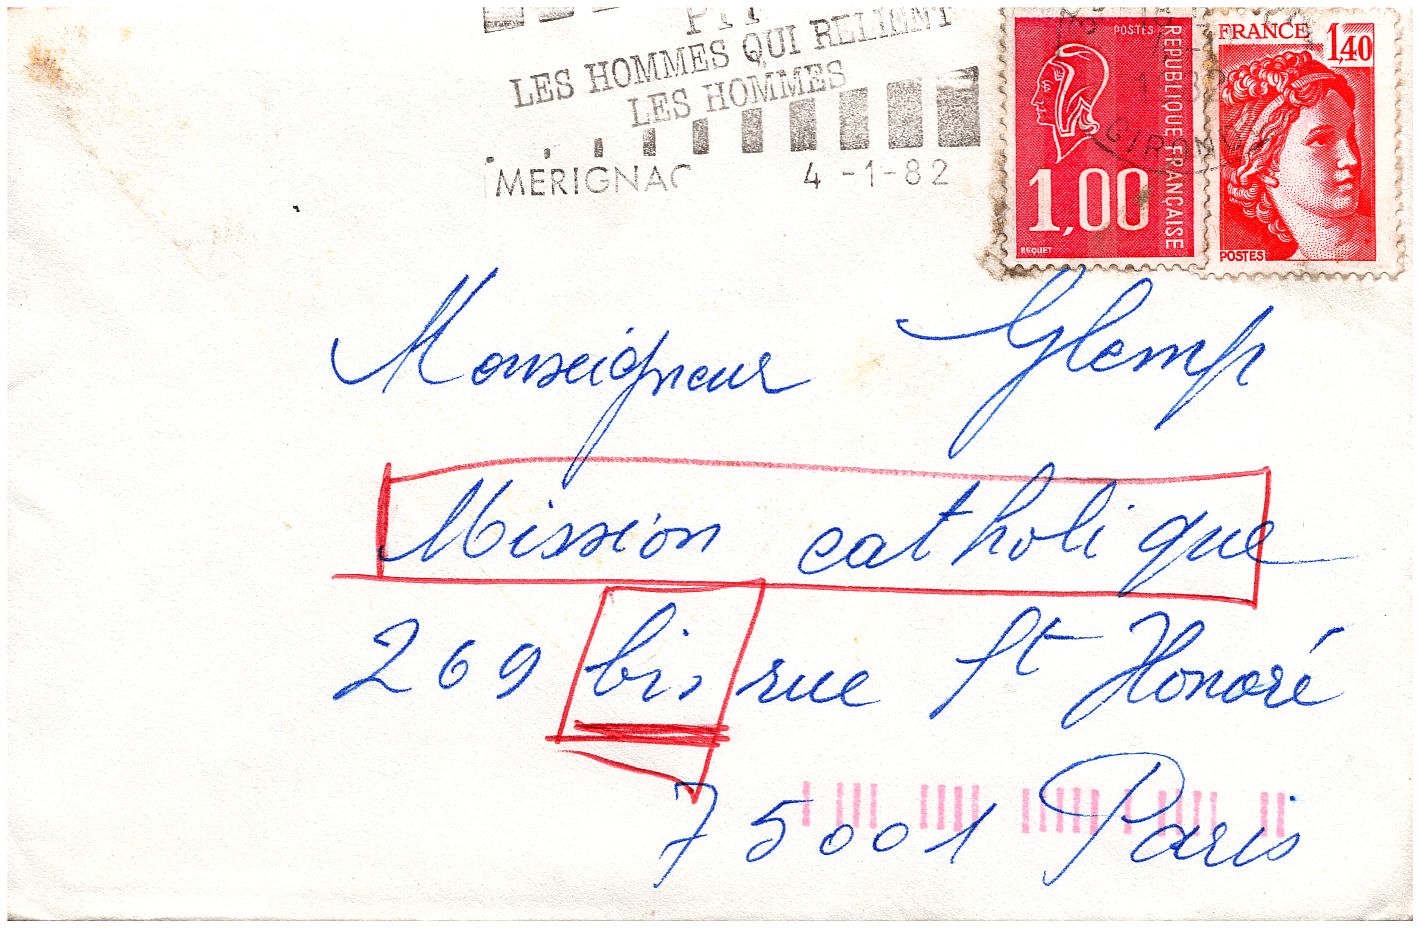 PTT
LES HOMMES QUI RELIENT
LES HOMMES
MERIGNAC 4-1-82
POSTES
REPUBLIQUE FRANÇAISE
1,00
BEQUET
FRANCE
1,40
POSTES
GIRONDE
Monseigneur Glemp
Mission catholique
269 bis rue St Honoré
75001 Paris